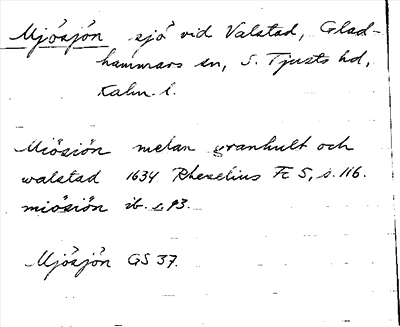 Mjösjön sjö vid Valstad, Glad-
hammars sn, S. Tjusts hd,
Kalm. l.
Miösiön melan granhult och
walstad 1634 Rhezelius Fc 5, s. 116.
miösiön ib. s. 93.
Mjösjön GS 37.